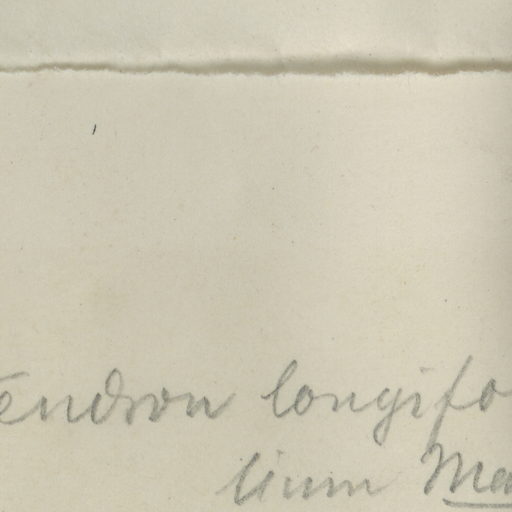 endron longifo
lium Ma